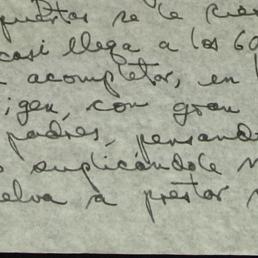 puertas se le cier
casi llega a los 60
a acompletar, en l
igen, con gran
padres, pensand
s suplicándole n
elva a prestar s